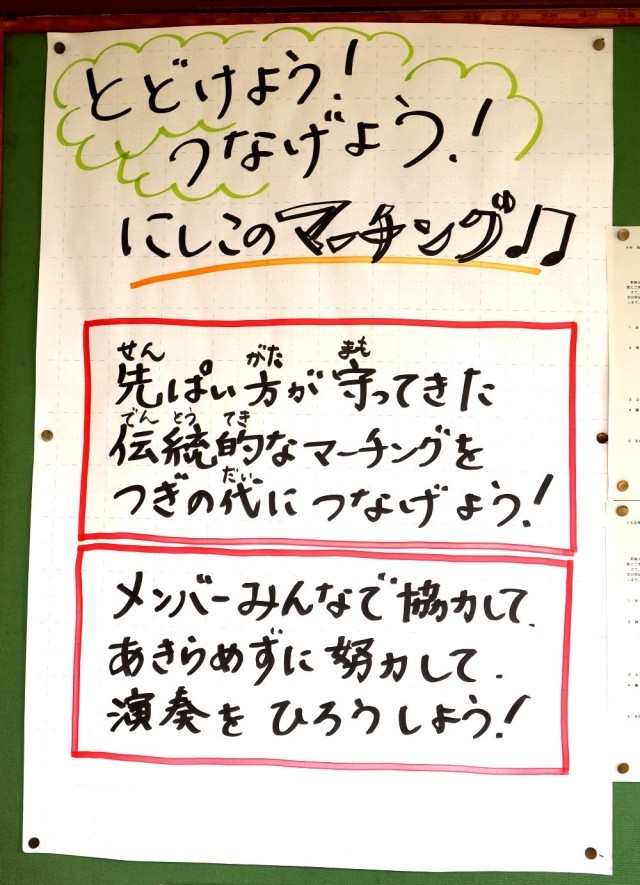 とどけよう!
つなげよう!
にしこのマーチング♪♫
せん がた まも
先ぱい方が守ってきた
でん とう てき
伝統的なマーチングを
だい
つぎの代につなげよう!
メンバーみんなで協力して、
あきらめずに努力して、
演奏をひろうしよう!